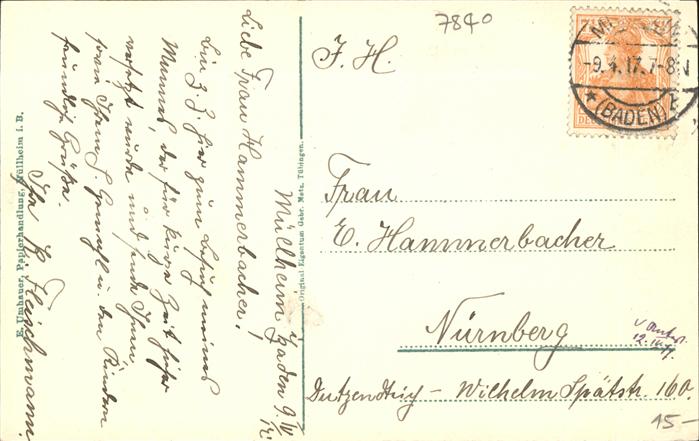 7840
Müllheim Baden 9. IV. 17.
Liebe Frau Hammerbacher!
Bin z. Z. hier zum Besuch meines
Mannes, der für kurze Zeit hierher
versetzt wurde und sende Ihnen
sowie Ihrem l. Gemahl u. den Kindern
freundliche Grüße.
Ihre B. Fleischmann.
E. Umhauer, Papierhandlung, Müllheim i. B.
Original Eigentum Gebr. Metz, Tübingen.
-9.4.17.7-8N
(BADEN)
F. H.
Frau
E. Hammerbacher
Nürnberg
12.IV.17.
Dutzendteich - Wilhelm Spätstr. 160.
15-